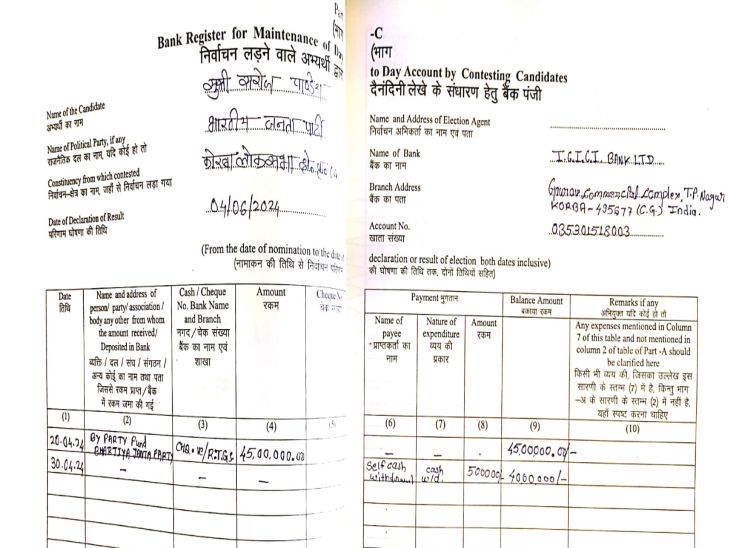 Part
(भाग
Bank Register for Maintenance of Day
निर्वाचन लड़ने वाले अभ्यर्थी द्वारा
Name of the Candidate
अभ्यर्थी का नाम
सुश्री सरोज पाण्डेय
Name of Political Party, if any
राजनैतिक दल का नाम, यदि कोई हो तो
भारतीय जनता पार्टी
Constituency from which contested
निर्वाचन-क्षेत्र का नाम, जहाँ से निर्वाचन लड़ा गया
कोरबा लोकसभा क्षेत्र
Date of Declaration of Result
परिणाम घोषणा की तिथि
04/06/2024
(From the date of nomination to the date of
(नामाकन की तिथि से निर्वाचन परिणाम
Date
तिथि
Name and address of
person/ party/association /
body any other from whom
the amount received/
Deposited in Bank
व्यक्ति / दल / संघ / संगठन /
अन्य कोई का नाम तथा पता
जिससे रकम प्राप्त / बैंक
में रकम जमा की गई
Cash / Cheque
No. Bank Name
and Branch
नगद / चेक संख्या
बैंक का नाम एवं
शाखा
Amount
रकम
Cheque No
चेक संख्या
(1) (2) (3) (4) (5)
20-04-24 By PARTY Fund CHQ. no/R.T.G.S 45,00,000.00
BHARTIYA JANTA PARTY
30.04.24 – – –
-C
(भाग
to Day Account by Contesting Candidates
दैनंदिनी लेखे के संधारण हेतु बैंक पंजी
Name and Address of Election Agent
निर्वाचन अभिकर्ता का नाम एवं पता
Name of Bank
बैंक का नाम
I.C.I.C.I. BANK LTD
Branch Address
बैंक का पता
Gourav Commercial Complex, T.P. Nagar
KORBA-495677 (C.G.) India.
Account No.
खाता संख्या
035301518003
declaration or result of election both dates inclusive)
की घोषणा की तिथि तक, दोनों तिथियों सहित)
Payment भुगतान
Balance Amount
बकाया रकम
Remarks if any
अभियुक्त यदि कोई हो तो
Name of
payee
प्राप्तकर्ता का
नाम
Nature of
expenditure
व्यय की
प्रकार
Amount
रकम
Any expenses mentioned in Column
7 of this table and not mentioned in
column 2 of table of Part -A should
be clarified here
किसी भी व्यय की, जिसका उल्लेख इस
सारणी के स्तम्भ (7) में है, किन्तु भाग
–अ के सारणी के स्तम्भ (2) में नहीं है,
यहाँ स्पष्ट करना चाहिए
(6) (7) (8) (9) (10)
– – . 4500000.00/-
Self cash cash 500000/- 4000000/-
withdrawal w/d.